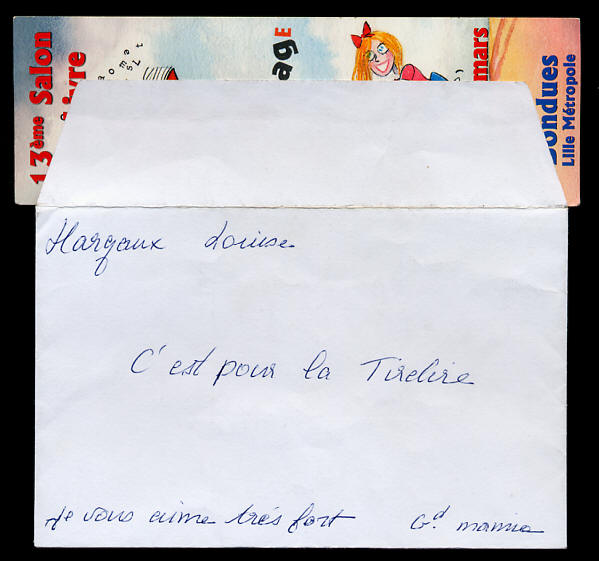 13ème Salon
ivre
agE
mars
Bondues
Lille Métropole
Margaux Louise
C'est pour la Tirelire
Je vous aime très fort Gd mamie